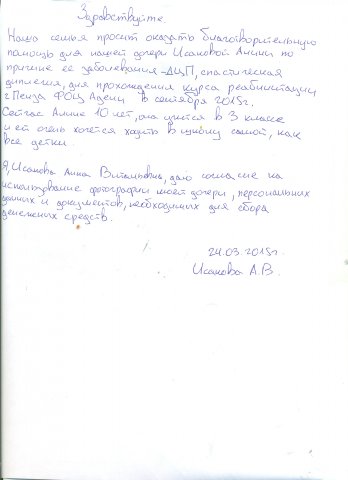 Здравствуйте
Наша семья просит оказать благотворительную
помощь для нашей дочери Исаковой Алины по
причине ее заболевания - ДЦП, спастическая
диплегия, для прохождения курса реабилитации
г. Пенза ФОЦ Адели в сентябре 2018г.
Сейчас Алине 10 лет, она учится в 3 классе
и ей очень хочется ходить в школу самой, как
все детки.
Я, Исакова Анна Витальевна, даю согласие на
использование фотографии моей дочери, персональных
данных и документов, необходимых для сбора
денежных средств.
24.03.2018г.
Исакова А.В.